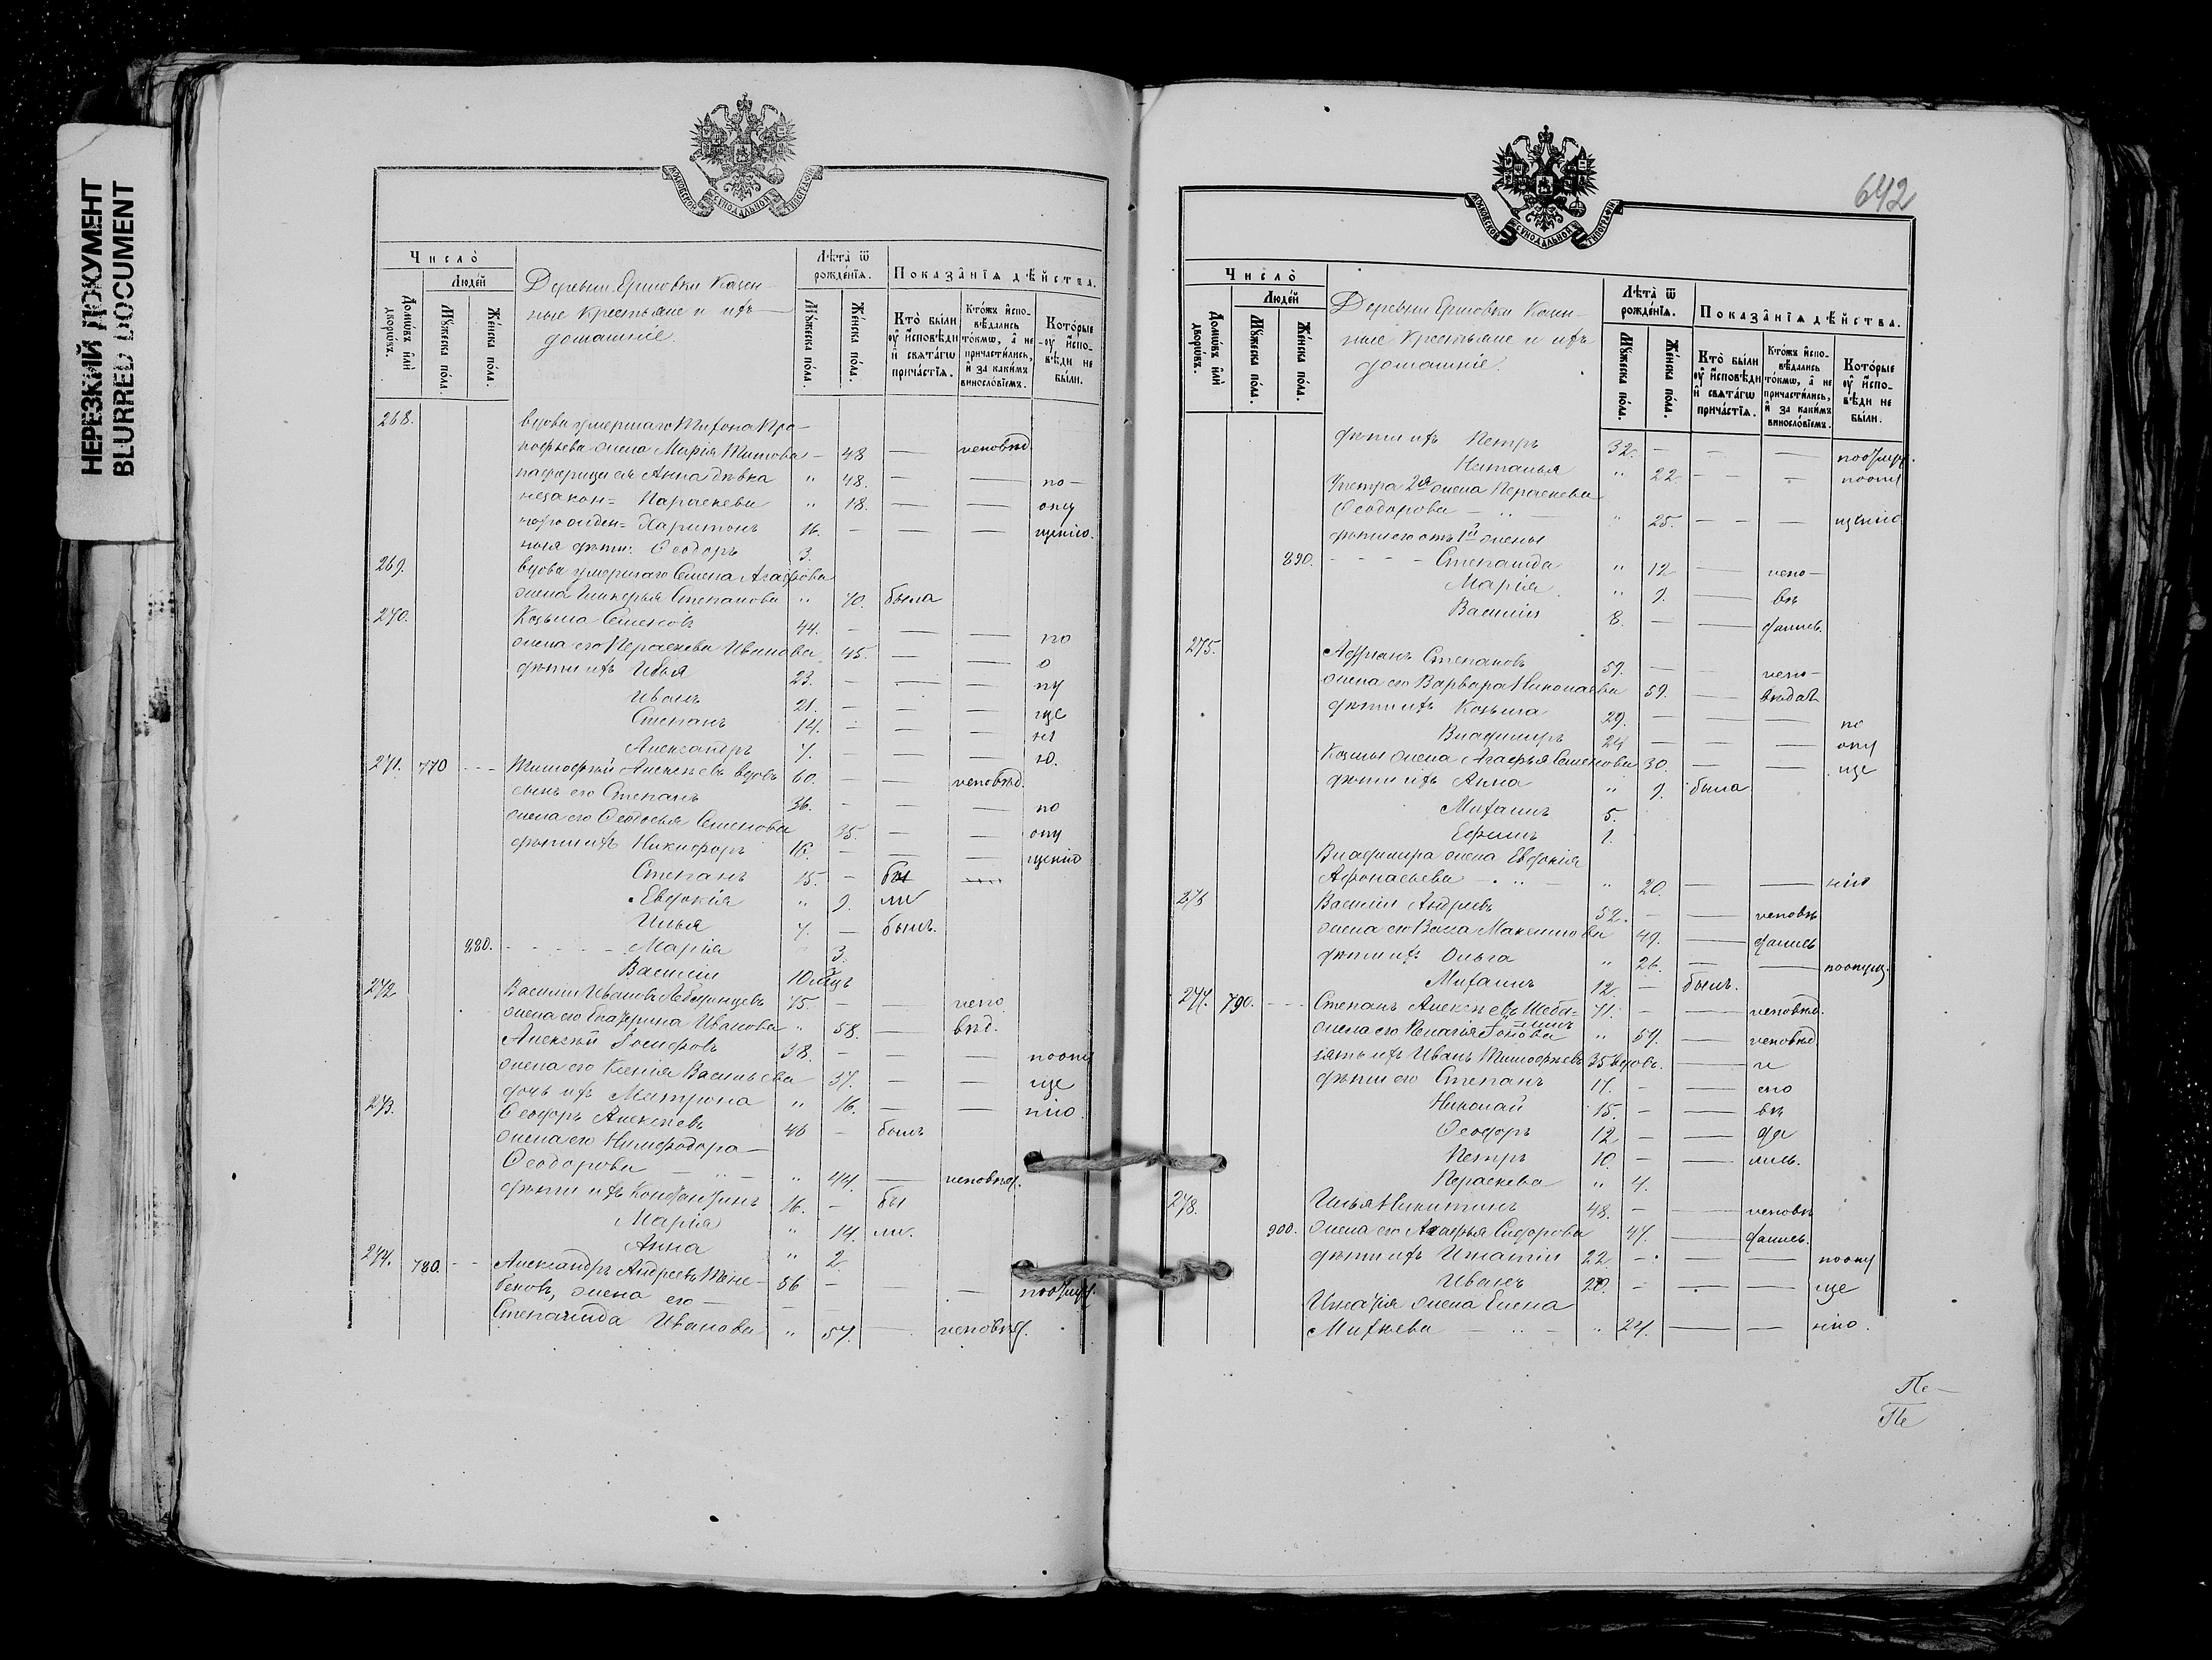 НЕРЕЗКИЙ ДОКУМЕНТ
BLURRED DOCUMENT
МОСКОВСКОЙ СѴНОДАЛЬНОЙ ТИПОГРАФІИ
Число̀
Людéй
Домѡ́въ и҆лѝ дворѡ́въ.
Мꙋ́жеска по́ла.
Же́нска по́ла.
Деревни Ершовки Казен-
ные крестьяне и ихъ
домашніе.
Лѣта̀ ѿ рожде́нїѧ.
Мꙋ́жеска по́ла.
Же́нска по́ла.
Показа̂нїѧ дѣ́йства.
Кто̀ бы́ли оу҆ и҆спо́вѣди и҆ свѧта́гѡ прича́стїѧ.
Кто́жъ и҆спо-вѣ́дались то́кмѡ, а҆ не причасти́лись, и҆ за каки́мъ винослові́емъ.
Кото́рые оу҆ и҆спо-вѣди не бы́ли.
268. вдова умершаго Тихона Про-
кофьева жена Марія Титова - 48 — исповѣд.
падчерица ея Анна дѣвка " 48. — — по-
незакон= Параскева " 18. — — опу
норожден= Харитонъ 16. — — щенію.
ныя дѣти: Ѳеодоръ 3.
269. вдова умершаго Семена Агафова
жена Гликерья Степанова " 70. была
270. Козьма Семеновъ 44. — — — по
жена его Параскева Иванова 45. — — о
дѣти ихъ Илья 23. — — — пу
Иванъ 21. — — — ще
Степанъ 14. — — — ні
Александръ 7. — — — ю.
271. 770 --- Тимофей Алексѣевъ вдовъ 60. — — исповѣд.
сынъ его Степанъ 36. — — — по
жена его Ѳеодосья Семенова 35. — — опу
дѣти ихъ Никифоръ 18. — — — щенію
Степанъ 15. — бы
Евдокія " 9. ли
Илья 7. — былъ.
880. ---- Марія " 3.
Василій 1 годъ
272 Василій Ивановъ 75. — — испо
жена его Екатерина Иванова " 58. — вѣд.
Алексѣй Іосифовъ 38. — — — поопу
жена его Ксенія Васильева 37. — — ще
дочь ихъ Матрона " 16. — — нію.
273. Ѳеодоръ Алексѣевъ 46 — былъ
жена его Нимфодора
Ѳеодорова — " — " 44. — исповѣд.
дѣти ихъ Константинъ 16. — бы
Марія " 14. ли.
Анна " 2
274. 780. -- Александръ Андреевъ 86 — — — поопущ.
жена его
Степанида Иванова " 57. — исповѣд.
642
МОСКОВСКОЙ СѴНОДАЛЬНОЙ ТИПОГРАФІИ
Число̀
Людéй
Домѡ́въ и҆лѝ дворѡ́въ.
Мꙋ́жеска по́ла.
Же́нска по́ла.
Деревни Ершовки Казен-
ные крестьяне и ихъ
домашніе.
Лѣта̀ ѿ рожде́нїѧ.
Мꙋ́жеска по́ла.
Же́нска по́ла.
Показа̂нїѧ дѣ́йства.
Кто̀ бы́ли оу҆ и҆спо́вѣди и҆ свѧта́гѡ прича́стїѧ.
Кто́жъ и҆спо-вѣ́дались то́кмѡ, а҆ не причасти́лись, и҆ за каки́мъ винослові́емъ.
Кото́рые оу҆ и҆спо-вѣди не бы́ли.
дѣти ихъ Петръ 32. — — — поопущ.
Наталья " 22. — — — поопу
Упетра 2ая жена Параскева
Ѳеодорова — " — " 25. — — — щенію
дѣти его отъ 1й жены
890. ---- Степанида " 12 — испо-
Марія " 9. — вѣ
Василій 8. — — дались.
275. Адріанъ Степановъ 59. — — испо-
жена его Варвара Николаева 59. — вѣдал
дѣти ихъ Козьма 29. — — — по
Владиміръ 24 — — — опу
Козмы жена Агафья Семенова 30. — — ще
дѣти ихъ Анна " 9. была
Михаилъ 5.
Ефимъ 1.
Владиміра жена Евдокія
Афонасьева — " — " 20. — — нію
276 Василій Андреевъ 52. — — исповѣ
жена его Васса Максимова 49. — дались
дѣти ихъ Ольга " 26. — — поопущ.
Михаилъ 12. — былъ.
277. 790. --- Степанъ Алексѣевъ 71. — — исповѣд.
жена его Пелагія " 59. — исповѣд
зять ихъ Иванъ Тимофѣевъ 35 вдовъ. — и
дѣти его Степанъ 17. — — спо
Николай 15. — — вѣ
Ѳеодоръ 12 — — да
Петръ 10. — — лись.
Параскева " 4.
278. Илья Никитинъ 48. — — исповѣ
900. жена его Агафья Сидорова 47. — дались.
дѣти ихъ Игнатій 22 — — — поопу
Иванъ 20. — — — ще
Игнатія жена Елена
Михеева — " — " 24. — — нію.
Пе-
Пе